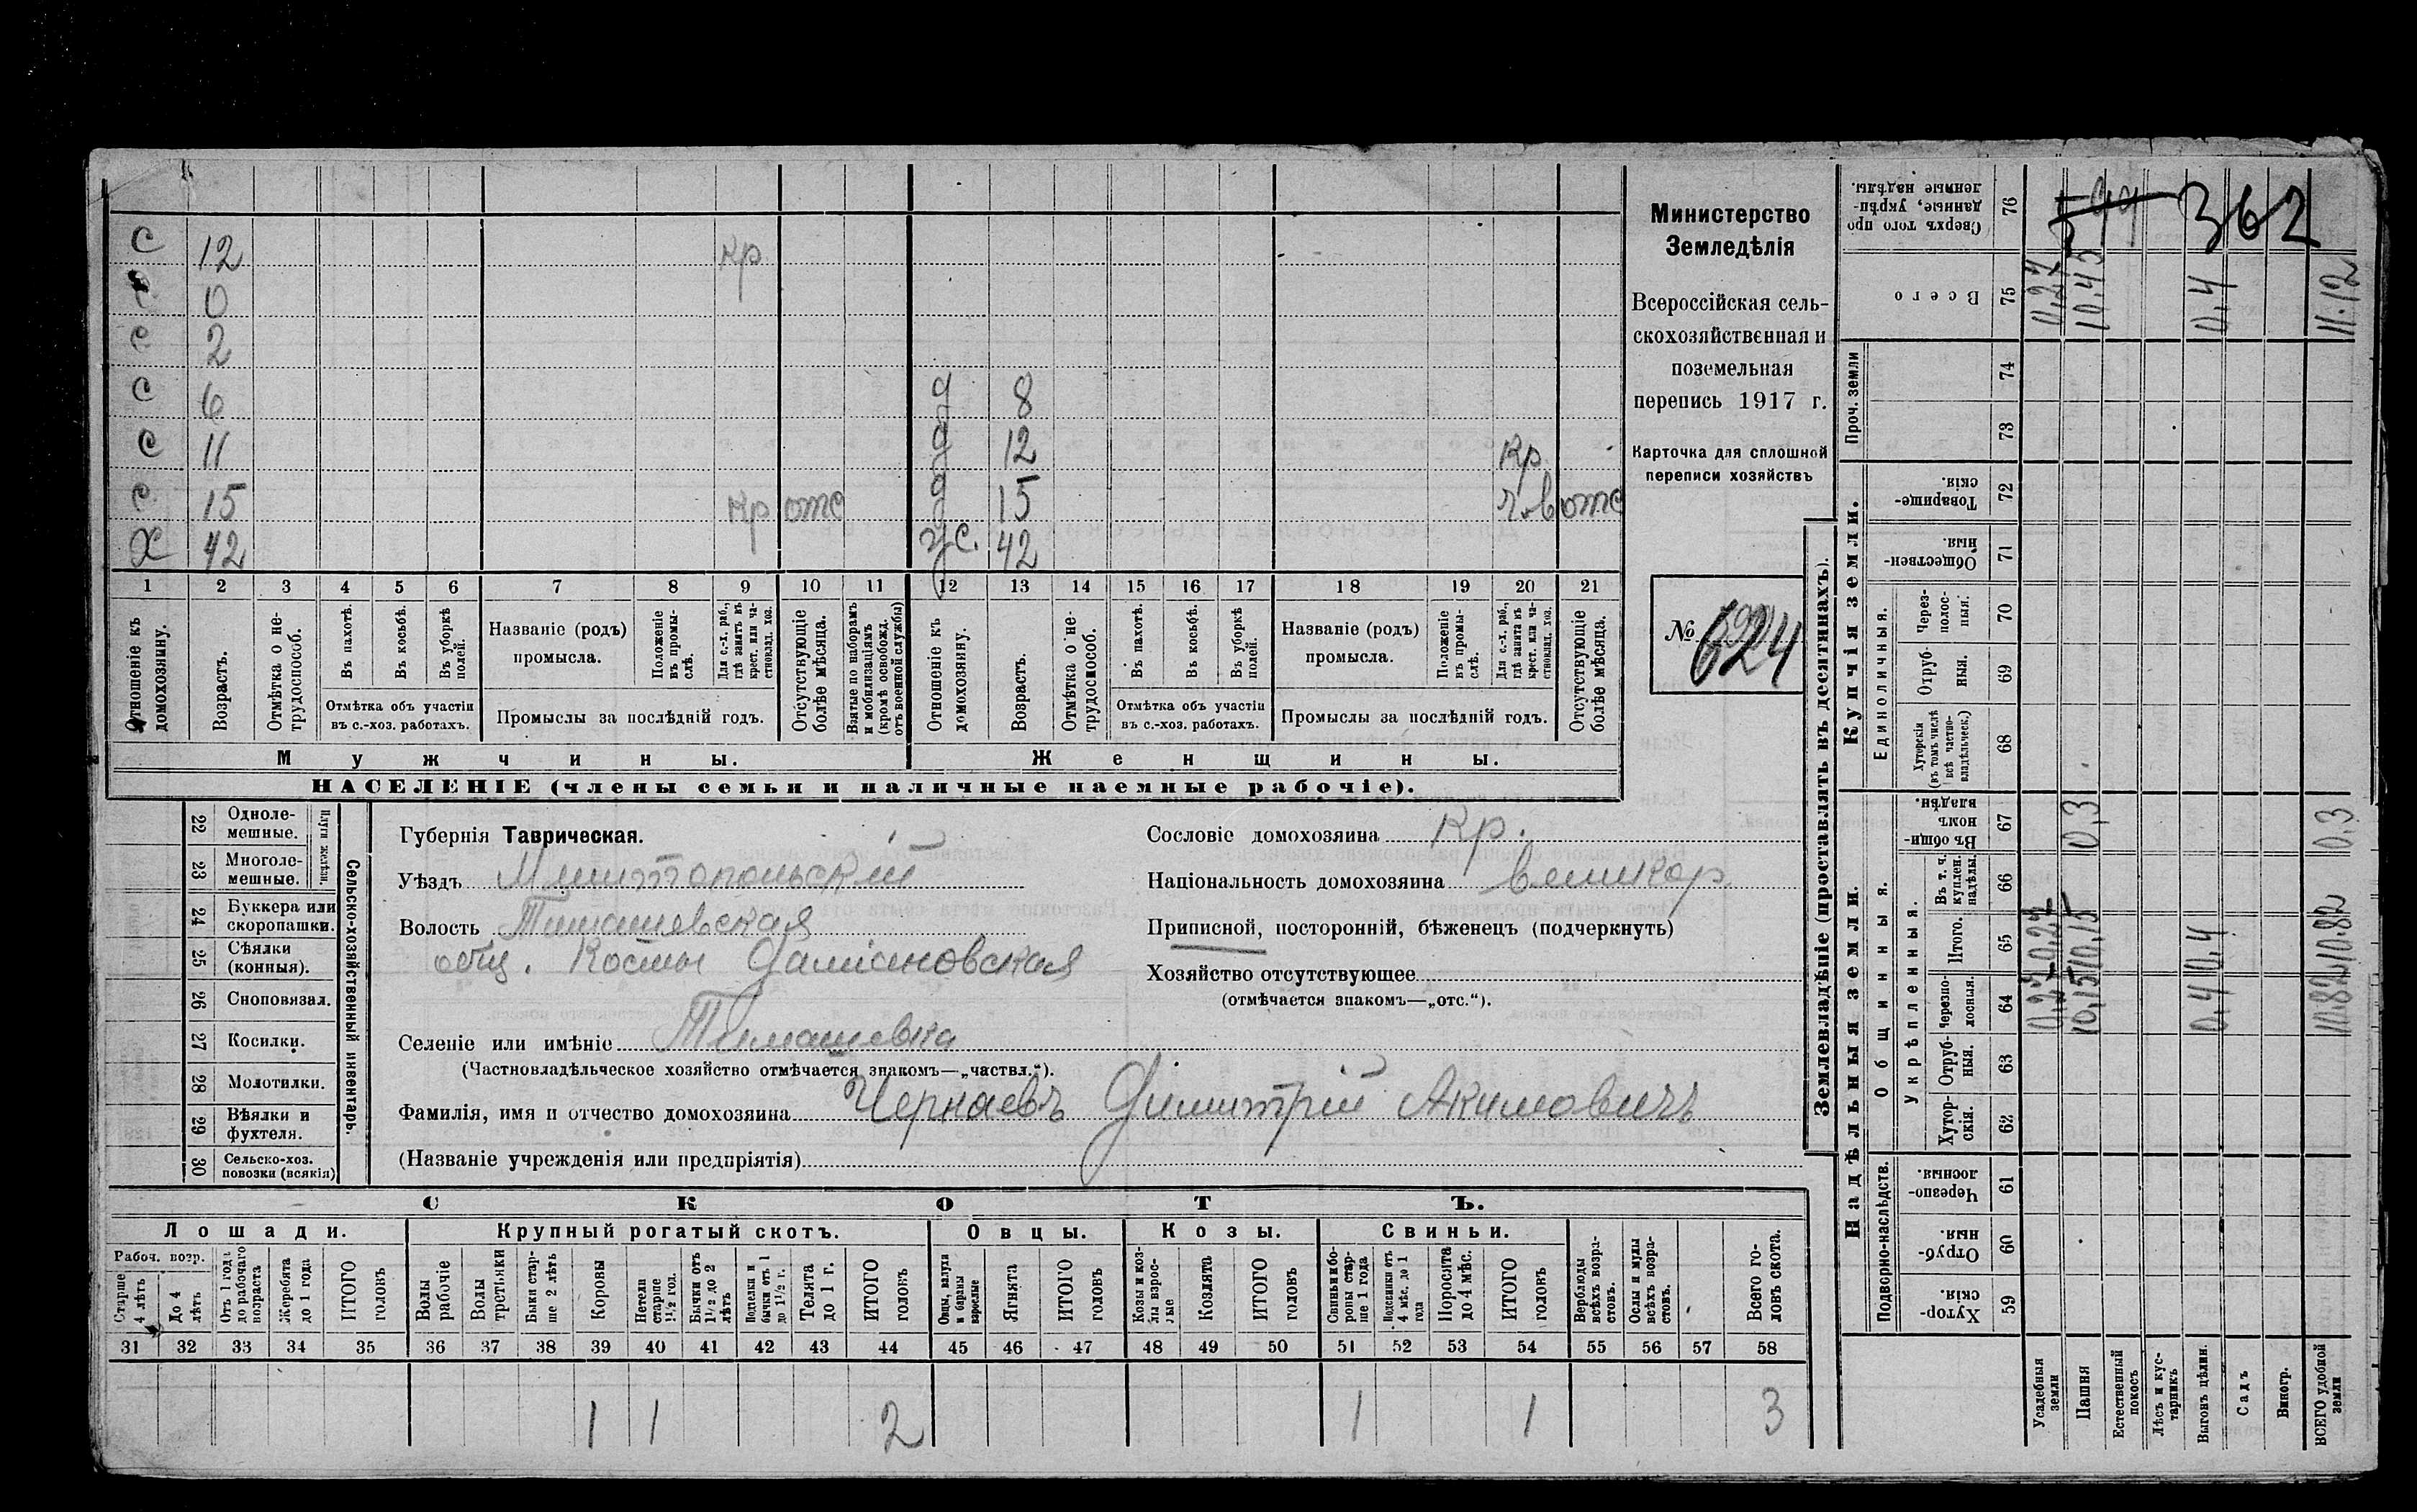 С 12 Кр
С 0
С 2
С 6 д 8
С 11 д 12 Кр
С 15 Кр отс д 15 ч.в отс
Х 42 жс. 42
1 2 3 4 5 6 7 8 9 10 11 12 13 14 15 16 17 18 19 20 21
Отношеніе къ домохозяину.
Возрастъ.
Отмѣтка о нетрудоспособ.
Въ пахотѣ.
Въ косьбѣ.
Въ уборкѣ полей.
Отмѣтка объ участіи
въ с.-хоз. работахъ.
Названіе (родъ)
промысла.
Положеніе въ промыслѣ.
Для с.-х. раб., гдѣ занятъ въ крест. или частновлад. хоз.
Промыслы за послѣдній годъ.
Отсутствующіе болѣе мѣсяца.
Взятые по наборамъ и мобилизаціямъ (кромѣ освобожд. отъ военной службы)
Отношеніе къ домохозяину.
Возрастъ.
Отмѣтка о нетрудоспособ.
Въ пахотѣ.
Въ косьбѣ.
Въ уборкѣ полей.
Отмѣтка объ участіи
въ с.-хоз. работахъ.
Названіе (родъ)
промысла.
Положеніе въ промыслѣ.
Для с.-х. раб., гдѣ занята въ крест. или частновлад. хоз.
Промыслы за послѣдній годъ.
Отсутствующіе болѣе мѣсяца.
Мужчины. Женщины.
НАСЕЛЕНІЕ (члены семьи и наличные наемные рабочіе).
Министерство
Земледѣлія
Всероссійская сель-
скохозяйственная и
поземельная
перепись 1917 г.
Карточка для сплошной
переписи хозяйствъ
№ 624
22 Одноле-
мешные.
23 Многоле-
мешные.
Плуги желѣзн.
24 Буккера или
скоропашки.
25 Сѣялки
(конныя).
26 Сноповязал.
27 Косилки.
28 Молотилки.
29 Вѣялки и
фухтеля.
30 Сельско-хоз.
повозки (всякія)
Сельско-хозяйственный инвентарь.
Губернія Таврическая.
Уѣздъ Мелитопольскій
Волость Тимашевская
общ. Космо Даміановская
Селеніе или имѣніе Тимашевка
(Частновладѣльческое хозяйство отмѣчается знакомъ—„частвл.“).
Фамилія, имя и отчество домохозяина Чернаевъ Димитрій Акимовичъ
(Названіе учрежденія или предпріятія)
Сословіе домохозяина Кр.
Національность домохозяина великор.
Приписной, посторонній, бѣженецъ (подчеркнуть)
Хозяйство отсутствующее
(отмѣчается знакомъ—„отс.“).
СКОТЪ.
Лошади. Крупный рогатый скотъ. Овцы. Козы. Свиньи.
Рабоч. возр.
Старше 4 лѣтъ
До 4 лѣтъ
Отъ 1 года до рабочаго возраста
Жеребята до 1 года
ИТОГО головъ
Волы рабочіе
Волы третьяки
Быки старше 2 лѣтъ
Коровы
Нетели старше 1½ год.
Бычки отъ 1½ до 2 лѣтъ
Подтелки и бычки отъ 1 до 1½ г.
Телята до 1 г.
ИТОГО головъ
Овцы, валухи и бараны взрослые
Ягнята
ИТОГО головъ
Козы и козлы взрослые
Козлята
ИТОГО головъ
Свиньи и боровы старше 1 года
Подсвинки отъ 4 мѣс. до 1 года
Поросята до 4 мѣс.
ИТОГО головъ
Верблюды всѣхъ возрастовъ.
Ослы и мулы всѣхъ возрастовъ.
Всего головъ скота.
31 32 33 34 35 36 37 38 39 40 41 42 43 44 45 46 47 48 49 50 51 52 53 54 55 56 57 58
1 1 2 1 1 3
Землевладѣніе (проставлять въ десятинахъ).
362
Сверхъ того проданные, укрѣпленные надѣлы. 76
Всего 75 0,27 10,45 0,4 11.12
Проч. земли 74
73
Купчія земли.
Товарищескія. 72
Общественныя. 71
Единоличныя.
Черезполосныя. 70
Отрубныя. 69
Хуторскія (въ томъ числѣ всѣ частновладѣльческ.) 68
Надѣльныя земли.
Общинныя.
Въ общинномъ владѣн. 67 0,3 0,3
Укрѣпленныя.
Въ т. ч. куплен. надѣлы. 66
Итого. 65 0,27 10,15 0,4 10.82
Черезполосныя. 64 0,27 10,15 0,4 10.82
Отрубныя. 63
Хуторскія. 62
Подворно-наслѣдств.
Черезполосныя. 61
Отрубныя. 60
Хуторскія. 59
Усадебныя земли
Пашня
Естественный покосъ
Лѣсъ и кустарникъ
Выгонъ цѣлин.
Садъ
Виногр.
ВСЕГО удобной земли